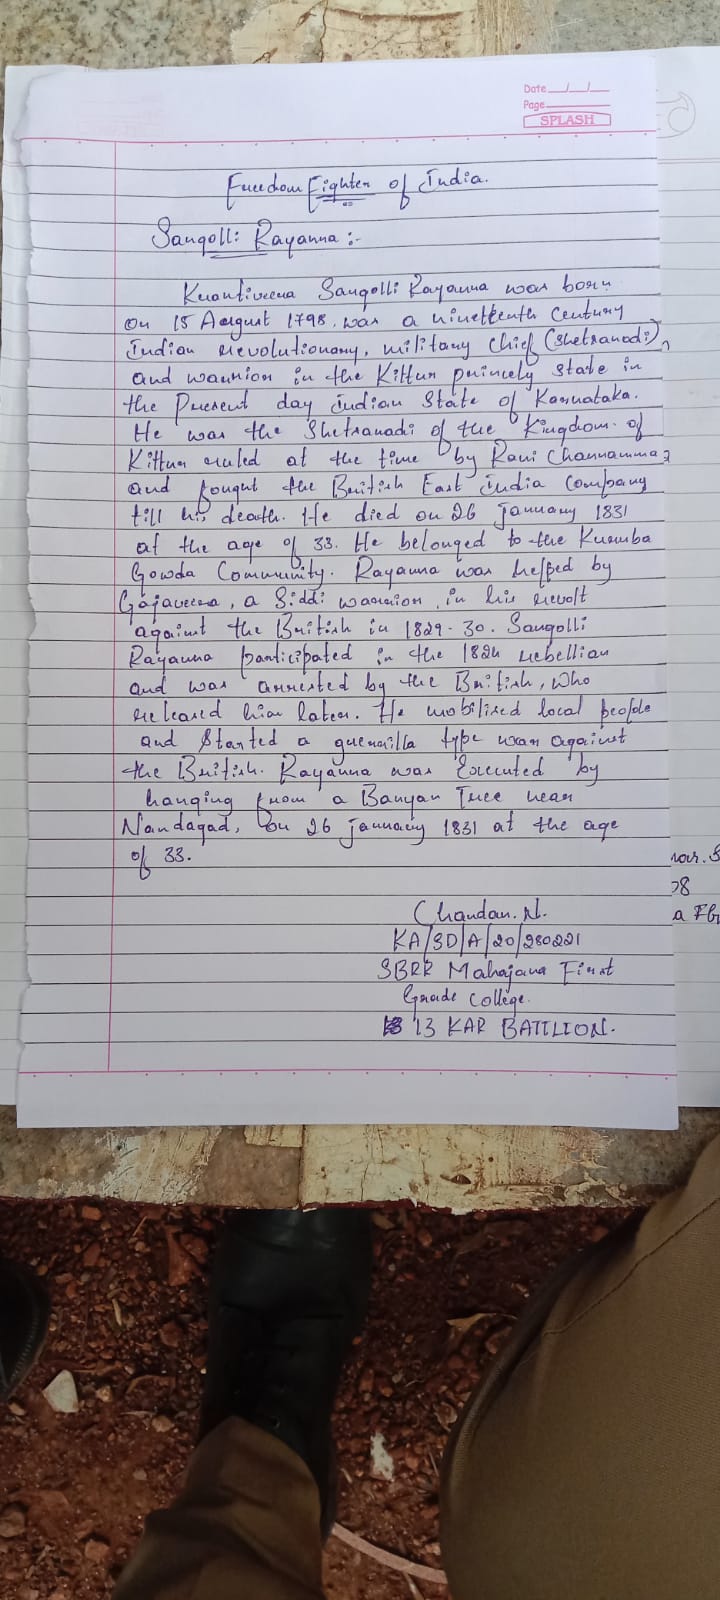 Date __/__/__
Page
SPLASH
Freedom Fighter of India.
Sangolli Rayanna :-
Krantiveera Sangolli Rayanna was born
on 15 August 1798. was a nineteenth century
Indian revolutionary, military chief (shetsanadi),
and warrior in the Kittur princely state in
the Present day Indian State of Karnataka.
He was the Shetsanadi of the Kingdom of
Kittur ruled at the time by Rani Channamma,
and fought the British East India Company
till his death. He died on 26 January 1831
at the age of 33. He belonged to the Kuruba
Gowda Community. Rayanna was helped by
Gajaveera, a Siddi warrior, in his revolt
against the British in 1829-30. Sangolli
Rayanna participated in the 1824 rebellian
and was arrested by the British, who
released him later. He mobilised local people
and started a guerrilla type war against
the British. Rayanna was Executed by
hanging from a Banyan Tree near
Nandagad, on 26 January 1831 at the age
of 33.
Chandan. N.
KA/SD/A/20/280221
SBRR Mahajana First
Grade College.
13 KAR BATTLION.